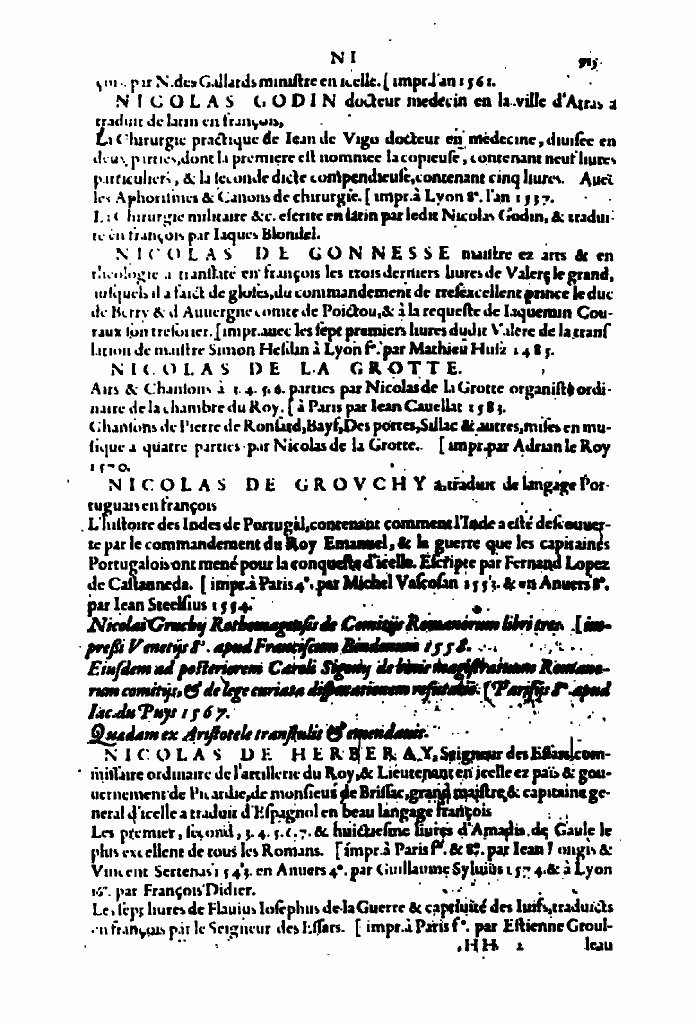 NI
par N. des Gallards ministre en icelle. [impr. l'an 1561.
NICOLAS GODIN docteur medecin en la ville d'Arras a
traduit de latin en françois,
La Chirurgie practique de Iean de Vigo docteur en medecine, diuisee en
deux parties, dont la premiere est nommee la copieuse, contenant neuf liures
particuliers, & la seconde dicte compendieuse, contenant cinq liures. Auec
les Aphorismes & Canons de chirurgie. [impr. à Lyon 8°. l'an 1537.
La Chirurgie militaire &c. escrite en latin par ledit Nicolas Godin, & tradui-
te en françois par Iaques Blondel.
NICOLAS DE GONNESSE maistre ez arts & en
theologie a translaté en françois les trois derniers liures de Valere le grand,
iusquels il a faict de gloses, du commandement de tresexcellent prince le duc
de Berry & d'Auuergne comte de Poictou, & à la requeste de Iaquemin Cou-
raux son tresorier. [impr. auec les sept premiers liures dudit Valere de la transf
lation de maistre Simon Hesdin à Lyon f°. par Mathieu Husz 1485.
NICOLAS DE LA GROTTE.
Airs & Chansons à 3. 4. 5. 6. parties par Nicolas de la Grotte organiste ordi-
naire de la chambre du Roy. [à Paris par Iean Cauellat 1583.
Chansons de Pierre de Ronsard, Bayf, Des portes, Sillac & autres, mises en mu-
sique a quatre parties par Nicolas de la Grotte. [impr. par Adrian le Roy
1570.
NICOLAS DE GROVCHY a traduit de langage Por-
tuguais en françois
L'histoire des Indes de Portugal, contenant comment l'Inde a esté descouuer-
te par le commandement du Roy Emanuel, & la guerre que les capitaines
Portugalois ont mené pour la conqueste d'icelle. Escripte par Fernand Lopez
de Castanneda. [impr. à Paris 4°. par Michel Vascosan 1553. & en Anuers 8°.
par Iean Steelsius 1554.
Nicolai Gruchij Rothomagensis de Comitijs Romanorum libri tres. [im-
pressi Venetijs 8°. apud Franciscum Bindonum 1558.
Eiusdem ad posteriorem Caroli Sigonij de binis magistratuum Romano-
rum comitijs, & de lege curiata disputationem refutatio. [Parisijs 8°. apud
Iac. du Puys 1567.
Quædam ex Aristotele transtulit & emendauit.
NICOLAS DE HERBERAY, Seigneur des Essars, com-
missaire ordinaire de l'artillerie du Roy, & Lieutenant en icelle ez païs & gou-
uernement de Picardie, de monsieur de Brissac, grand maistre & capitaine ge-
neral d'icelle a traduit d'Espagnol en beau langage françois
Les premier, second, 3. 4. 5. 6. 7. & huictiesme liures d'Amadis de Gaule le
plus excellent de tous les Romans. [impr. à Paris f°. & 8°. par Iean Longis &
Vincent Sertenas 1543. en Anuers 4°. par Guillaume Syluius 1574. & à Lyon
16°. par François Didier.
Les sept liures de Flauius Iosephus de la Guerre & captiuité des Iuifs, traduicts
en françois par le Seigneur des Essars. [impr. à Paris f°. par Estienne Groul-
HH 2 leau